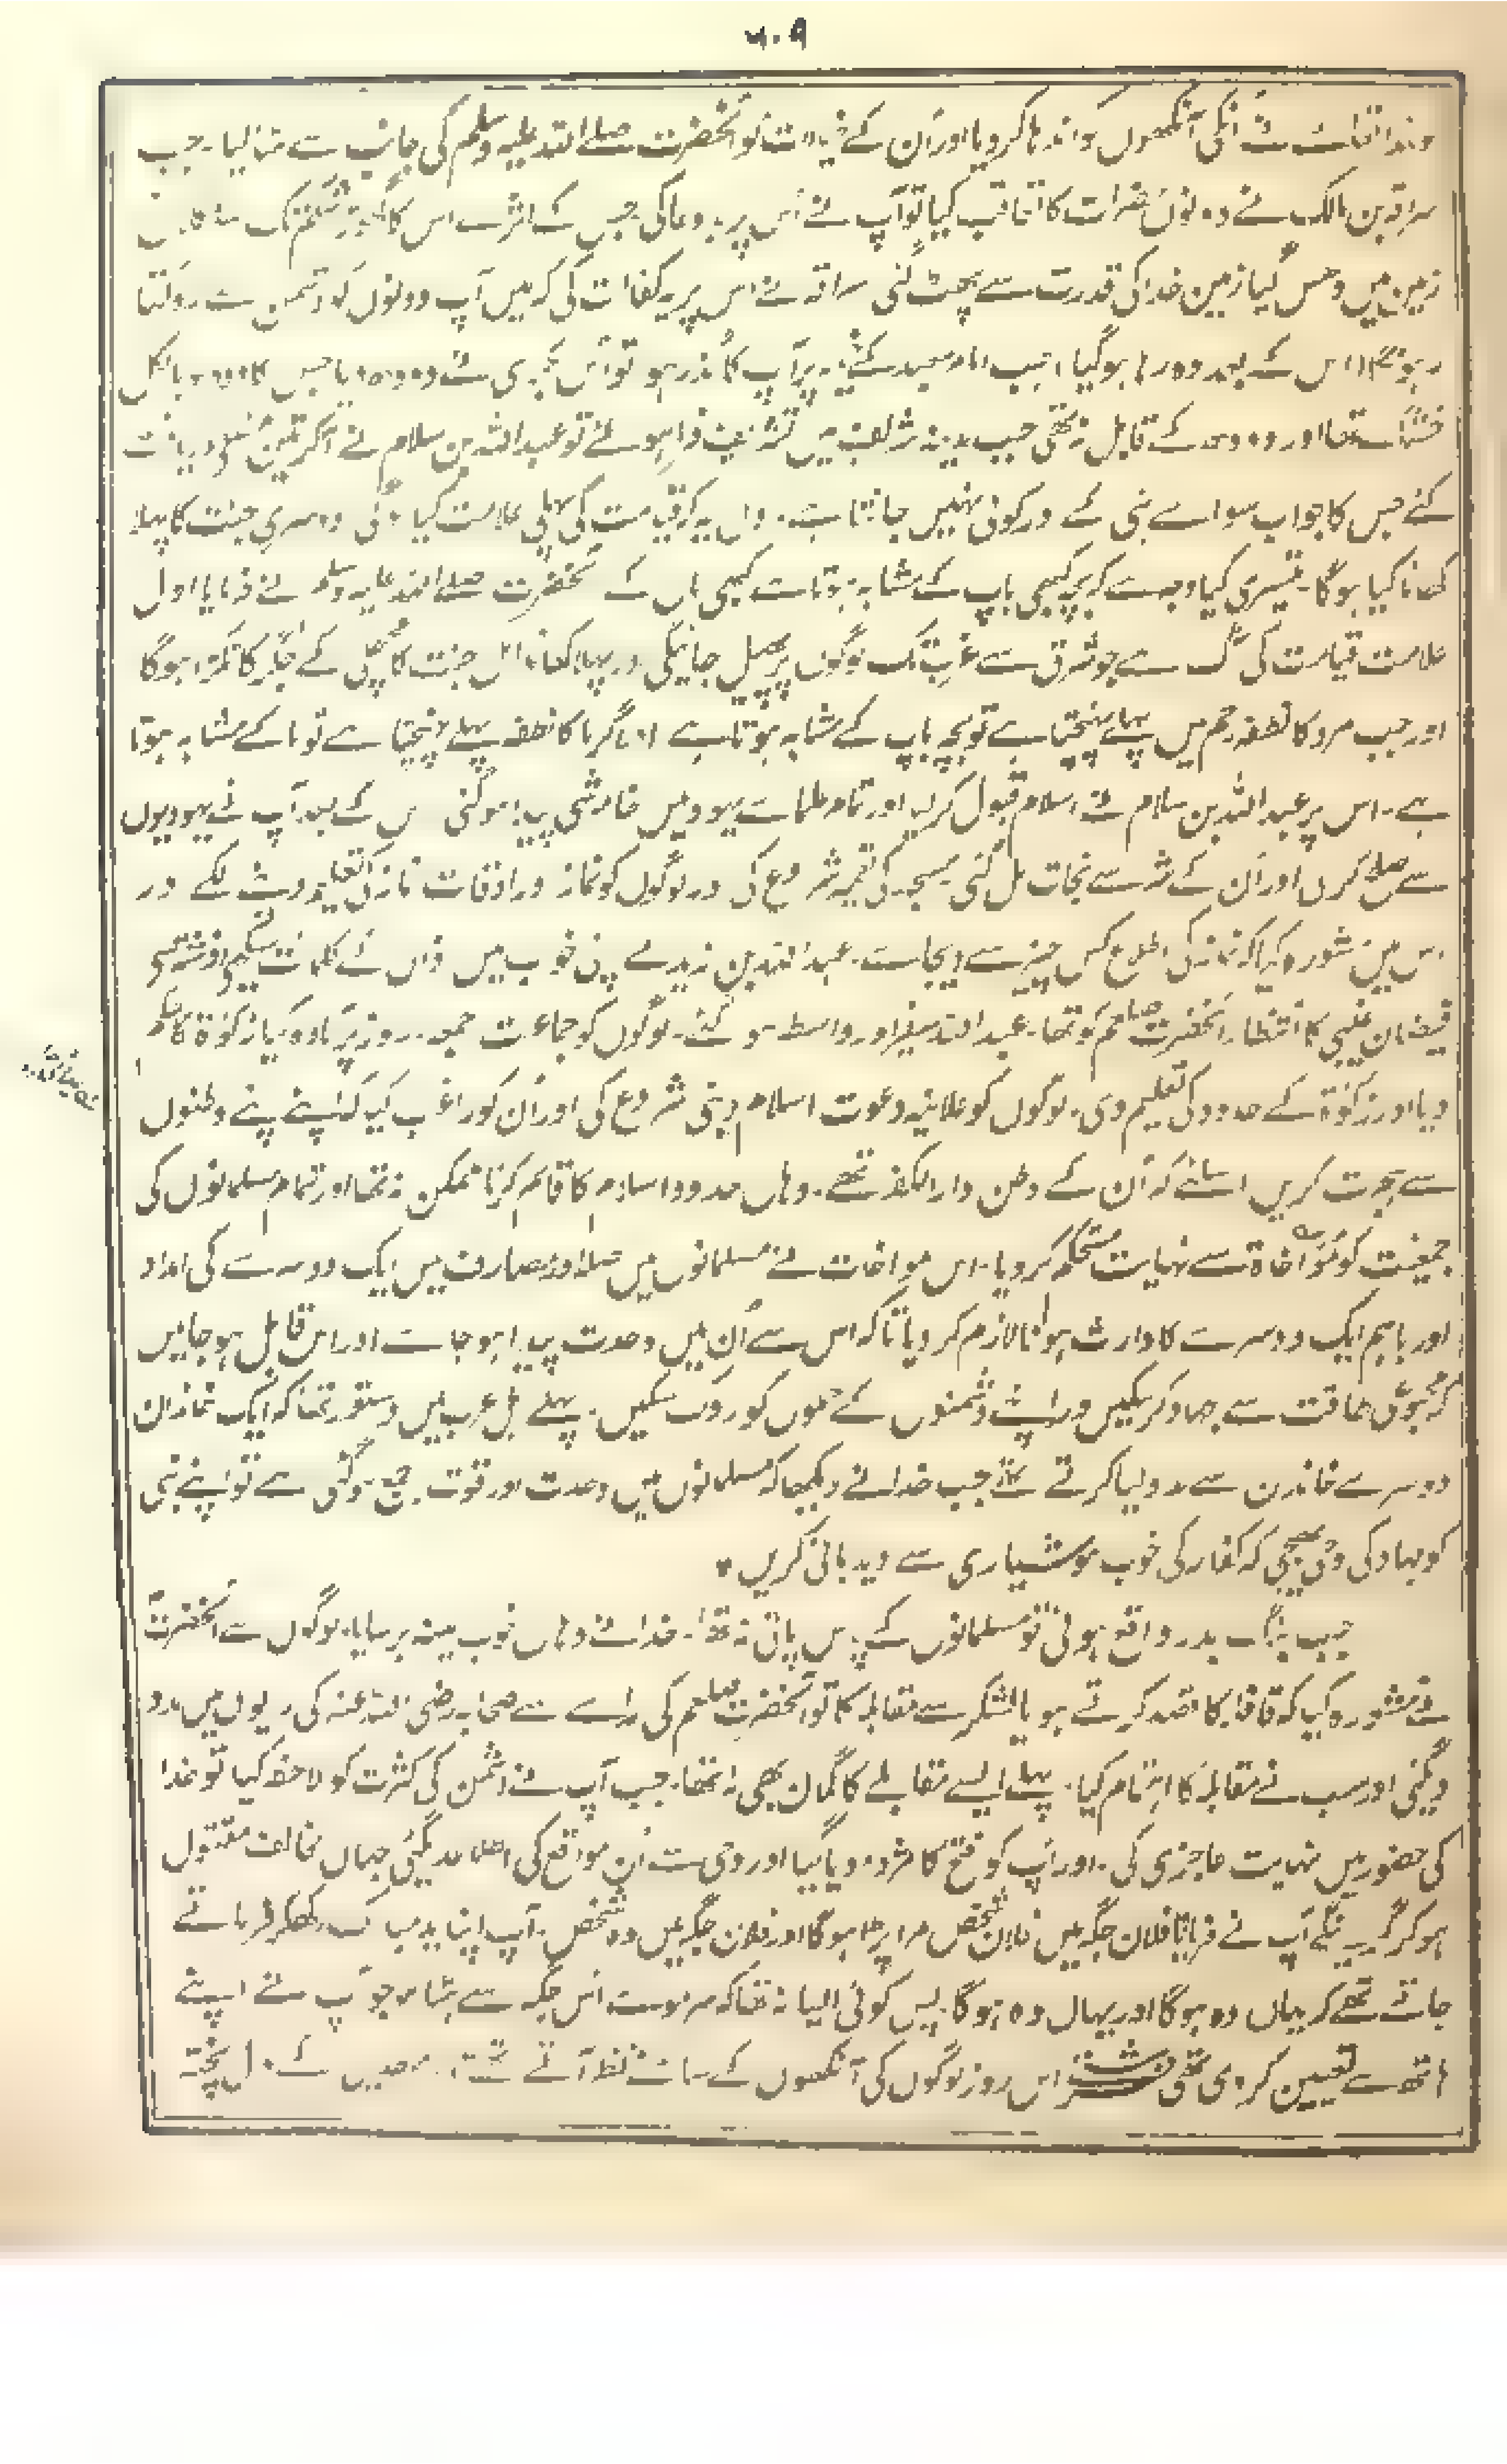 ۶۰۹
نے انکی آنکھوں کو اندہا کر دیا اور اُن کے خیالات کو آنحضرت صلے اللہ علیہ وسلم کی جانب سے ہٹا لیا۔ جب
سراقہ بن مالک نے دونوں حضرات کا تعاقب کیا تو آپ نے اُس پر بد دعا کی جس کے اثر سے اس کا گھوڑا شکم تک
زمین میں دھس گیا زمین خدا کی قدرت سے پھٹ گئی سراقہ نے اس پر یہ کفالت کی کہ میں آپ دونوں کو دشمن سے روکتا
رہونگا اس کے بعد وہ رہا ہوگیا جب ام معبد کے خیمہ پر آپ کا گذر ہو تو اُس بکری نے دودھ دیا جس کا دودھ بالکل
خشک تھا اور دودھ کے قابل نہ تھی جب مدینہ شریف میں تشریف فرما ہوئے تو عبداللہ بن سلام نے آکر تین دریافت
کئے جس کا جواب سوائے نبی کے اور کوئی نہیں جانتا ہے۔ اول یہ کہ قیامت کی پہلی علامت کیا ہوگی دوسری جنت کا پہلا
کھانا کیا ہوگا۔ تیسری کیا وجہ ہے کہ بچہ کبھی باپ کے مشابہ ہوتا ہے کبھی ماں کے آنحضرت صلے اللہ علیہ وسلم نے فرمایا اول
علامت قیامت کی آگ ہے جو مشرق سے مغرب تک لوگوں پر پھیل جائیگی اور پہلا کھانا اہل جنت کا مچھلی کے جگر کا ٹکڑا ہوگا
اور جب مرد کا نطفہ رحم میں پہلے پہنچتا ہے تو بچہ باپ کے مشابہ ہوتا ہے اور اگر ماں کا نطفہ پہلے پہنچتا ہے تو ماں کے مشابہ ہوتا
ہے۔ اس پر عبداللہ بن سلام نے اسلام قبول کر لیا اور تمام علمائے یہود میں خاموشی پیدا ہوگئی اس کے بعد آپ نے یہودیوں
سے صلح کر لی اور اُن کے شر سے نجات مل گئی مسجد کی تعمیر شروع کی اور لوگوں کو نماز اور اوقات نماز کی تعلیم دینے لگے اور
اس میں مشورہ کیا کہ نماز کی اطلاع کس چیز سے دیجائے۔ عبداللہ بن زید نے اپنی خواب میں اذان کے کلمات سیکھے
فیضان غیبی کا انتظار آنحضرت صلعم کو تھا۔ عبداللہ سفیر اور واسطہ ہو گئے۔ لوگوں کو جماعت جمعہ۔ روزہ پر آمادہ کیا زکوٰۃ کا حکم
دیا اور زکوٰۃ کے حدود کی تعلیم دی۔ لوگوں کو علانیہ دعوت اسلام دینی شروع کی اور اُن کو راغب کیا کہ اپنے اپنے وطنوں
سے ہجرت کریں اسلئے کہ اُن کے وطن دار الکفر تھے۔ وہاں حدود اسلام کا قائم کرنا ممکن نہ تھا اور تمام مسلمانوں کی
جمعیت کو مؤاخاۃ سے نہایت مستحکم کر دیا۔ اس مواخات نے مسلمانوں میں صلہ اور مصارف میں ایک دوسرے کی امداد
اور باہم ایک دوسرے کا وارث ہونا لازم کر دیا تاکہ اس سے اُن میں وحدت پیدا ہو جائے اور اس قابل ہو جائیں
کہ مجموعی طاقت سے جہاد کر سکیں اور اپنے دشمنوں کے حملوں کو روک سکیں۔ پہلے اہل عرب میں دستور تھا کہ ایک خاندان
دوسرے خاندان سے مدد لیا کرتے تھے جب خدا نے دیکھا کہ مسلمانوں میں وحدت اور قوت جمع ہوگئی ہے تو اپنے نبی
کو جہاد کی وحی بھیجی کہ کفار کی خوب ہوشیاری سے دیدبانی کریں ؞
جب جنگ بدر واقع ہوئی تو مسلمانوں کے پاس پانی نہ تھا۔ خدا نے وہاں خوب مینہ برسایا۔ لوگوں سے آنحضرتؐ
نے مشورہ کیا کہ قافلہ کا قصد کرتے ہو یا لشکر سے مقابلہ کا تو آنحضرت صلعم کی رائے سے صحابہ رضی اللہ عنہ کی رایوں میں مدد
دیگئی اور سب نے مقابلہ کا اہتمام کیا۔ پہلے ایسے مقابلے کا گمان بھی نہ تھا۔ جب آپ نے دشمن کی کثرت کو ملاحظہ کیا تو خدا
کی حضور میں نہایت عاجزی کی۔ اور آپ کو فتح کا مژدہ دیا گیا اور وحی سے اُن مواقع کی اطلاع دیگئی جہاں مخالف مقتول
ہوکر گرینگے آپ نے فرمایا فلان جگہ میں فلان شخص مرا پڑا ہوگا اور فلان جگہ میں وہ شخص۔ آپ اپنا ید مبارک رکھکر فرماتے
جاتے تھے کہ یہاں وہ ہوگا اور یہاں وہ ہوگا پس کوئی ایسا نہ تھا کہ سر موے اُس جگہ سے ہٹا ہو جو آپ نے اپنے
ہاتھ سے تعیین کر دی تھی فرشتے اس روز لوگوں کی آنکھوں کے سامنے نظر آتے تھے کے دل پختہ